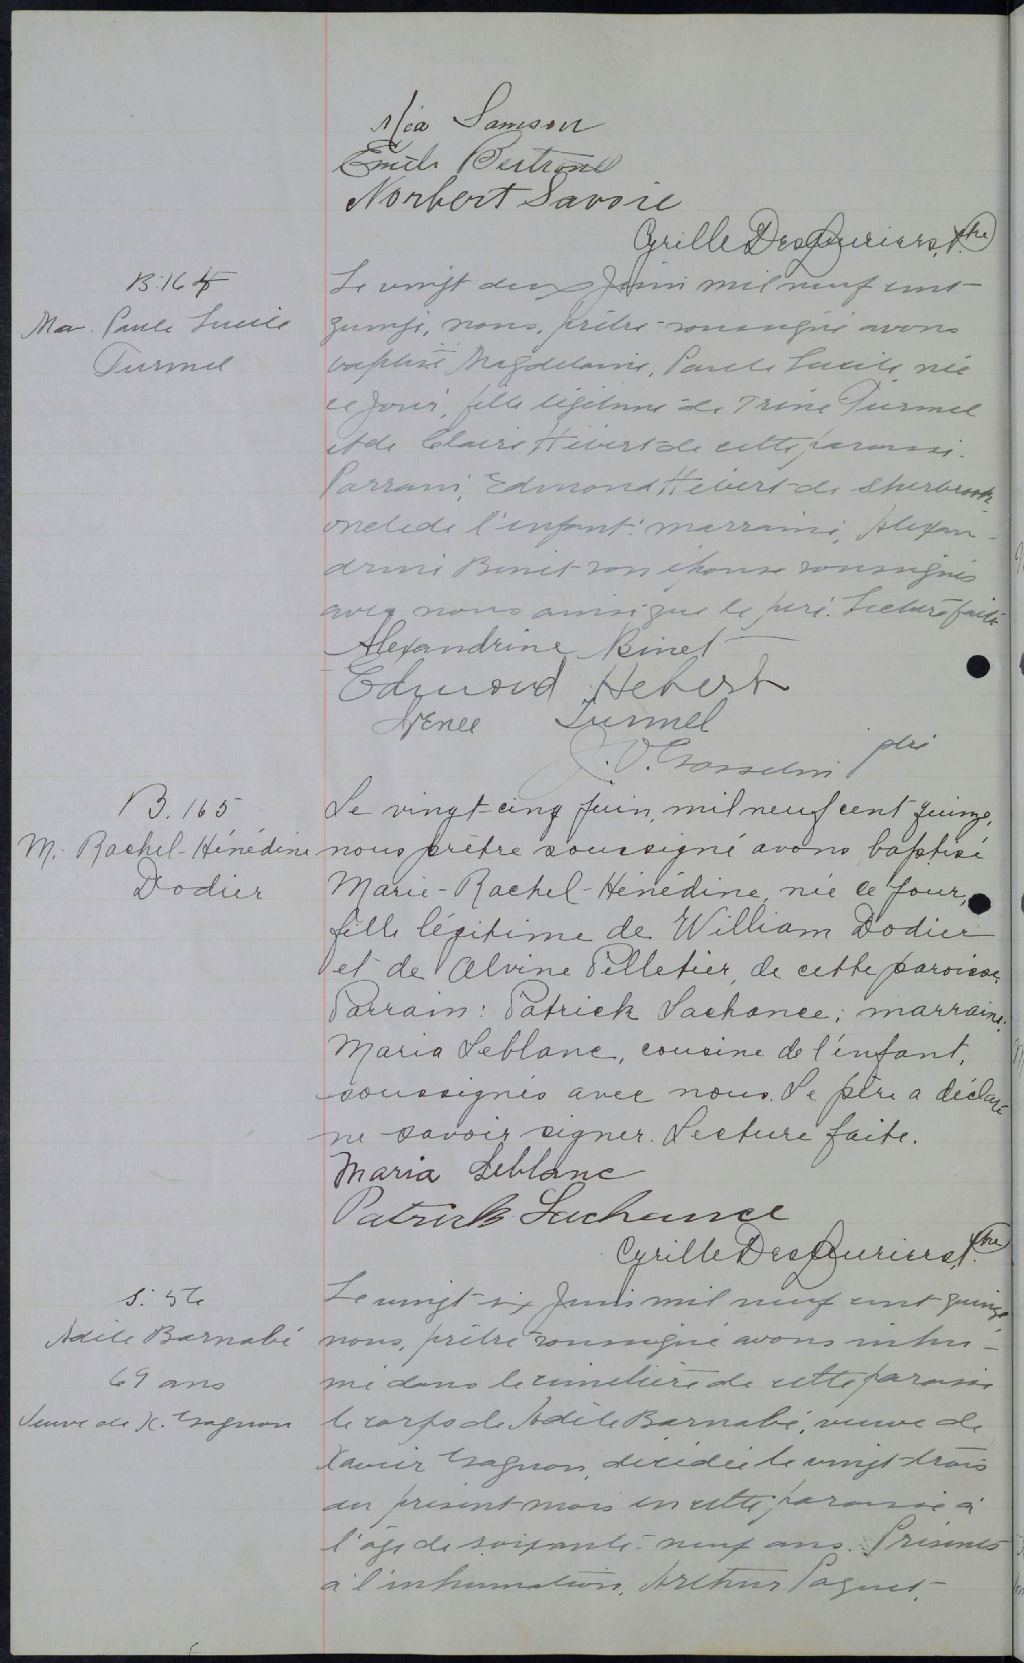 Samson
Emile Bertrand
Norbert Savoie
Cyrille Des Lauriers, Ptre
B. 164
Mar. Paule Lucile
Turmel
Le vingt deux Juin mil neuf cent
quinze, nous, prêtre soussigné avons
baptisé Magdelaine, Paule Lucile née
ce jour, fille légitime de Irène Turmel
et de Claire Hébert de cette paroisse.
Parrain, Edmond Hébert de Sherbrooke
oncle de l'enfant: marraine, Alexan-
drine Binet son épouse soussignés
avec nous ainsi que le père. Lecture faite
Alexandrine Binet
Edmond Hebert
Irenee Turmel
J. O. Gosselin ptre
B. 165
M.- Rachel-Hénédine
Dodier
Le vingt-cinq juin, mil neuf cent quinze,
nous prêtre soussigné avons baptisé
Marie-Rachel-Hénédine, née ce jour,
fille légitime de William Dodier
et de Alvine Pelletier, de cette paroisse.
Parrain: Patrick Lachance; marraine:
Maria Leblanc, cousine de l'enfant,
soussignés avec nous. Le père a déclaré
ne savoir signer. Lecture faite.
Maria Leblanc
Patrick Lachance
Cyrille Des Lauriers, Ptre
S. 56
Adèle Barnabé
69 ans
Veuve de X. Gagnon
Le vingt-six Juin mil neuf cent quinze
nous, prêtre soussigné avons inhu-
mé dans le cimetière de cette paroisse
le corps de Adèle Barnabé, veuve de
Xavier Gagnon, décédée le vingt-trois
du présent mois en cette paroisse à
l'âge de soixante-neuf ans. Présents
à l'inhumation, Arthur Paquet,